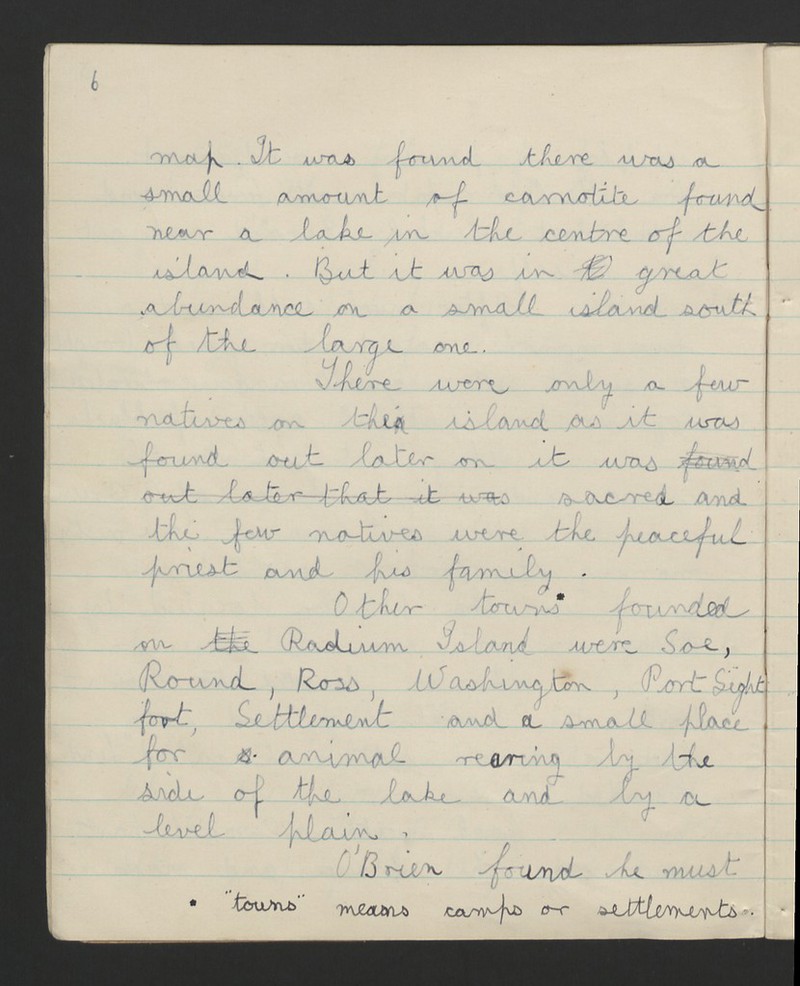 6
map. It was found there was a
small amount of carnotite found
near a lake in the centre of the
island. But it was in great
abundance on a small island south
of the large one.
There were only a few
natives on island as it was
found out later on it was found
out later that it was sacred and
the few natives were the peaceful
priest and his family.
Other towns* founded
on the Radium Island were Soe,
Round, Ross, Washington, Port Sight
foot, Settlement and a small place
for animal rearing by the
side of the lake and by a
level plain.
O'Brien found he must
* "towns" means camps or settlements.